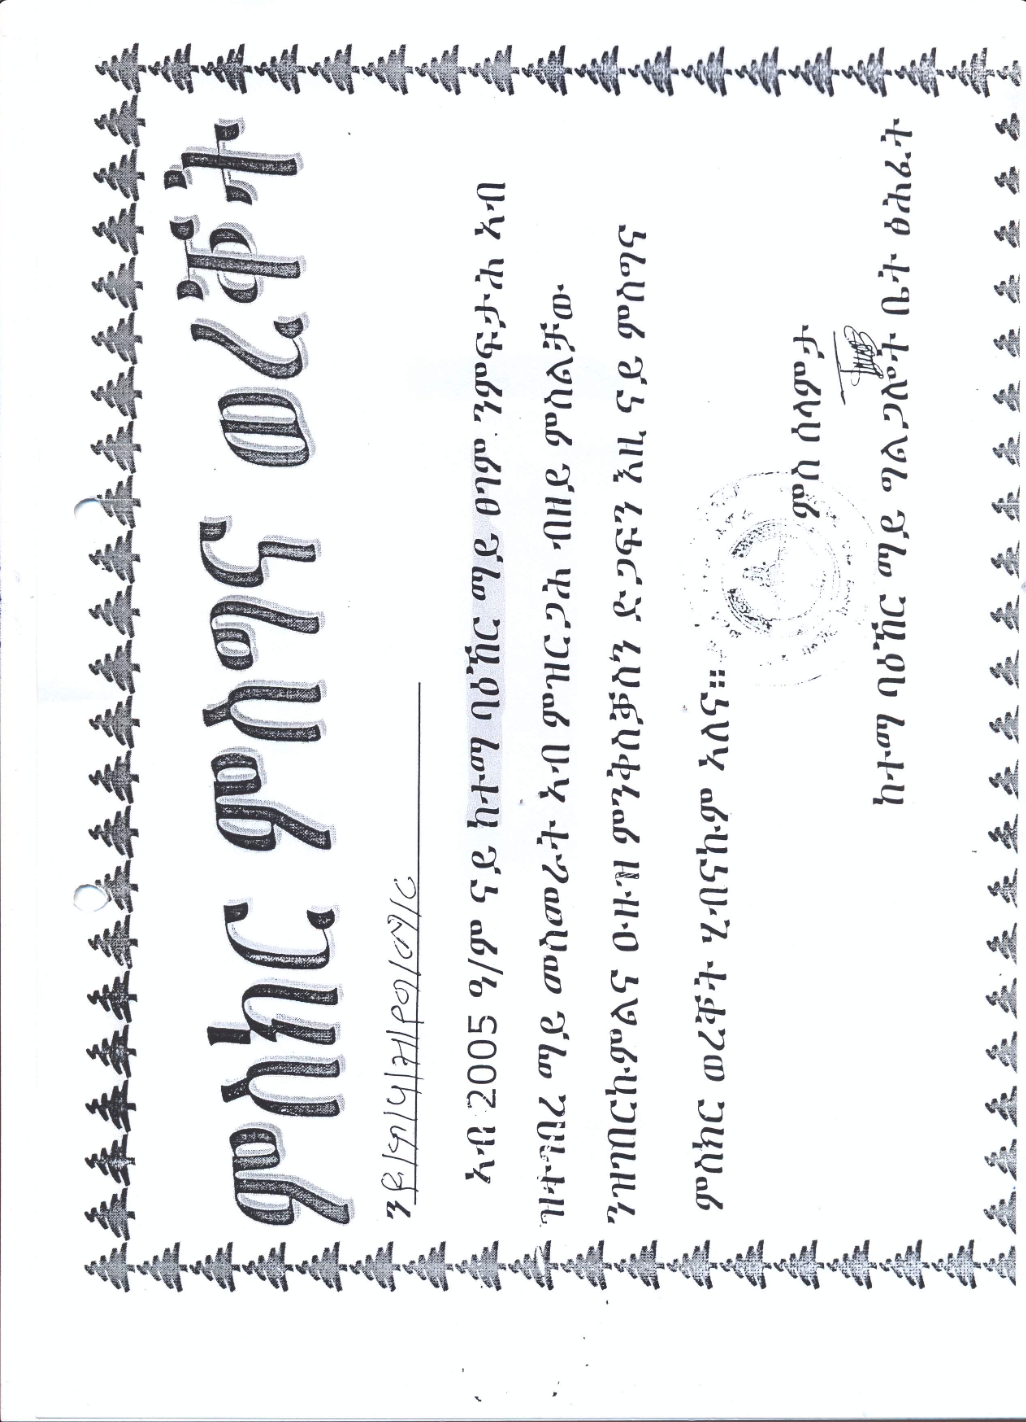 ምስክር ምስጋና ወረቐት
ን
አብ 2005 ዓ/ም ናይ ከተማ ባዕኸር ማይ ፀገም ንምፍታሕ አብ
ዝተገበረ ማይ መስመራት አብ ምዝርጋሕ ብዘይ ምስልቻው
ንዝገበርክምልና ዑዙዝ ምንቅስቓስን ድጋፍን እዚ ናይ ምስጋና
ምስክር ወረቐት ሂብናኩም አለና።
ምስ ሰላምታ
ከተማ ባዕኸር ማይ ግልጋሎት ቤት ፅሕፈት